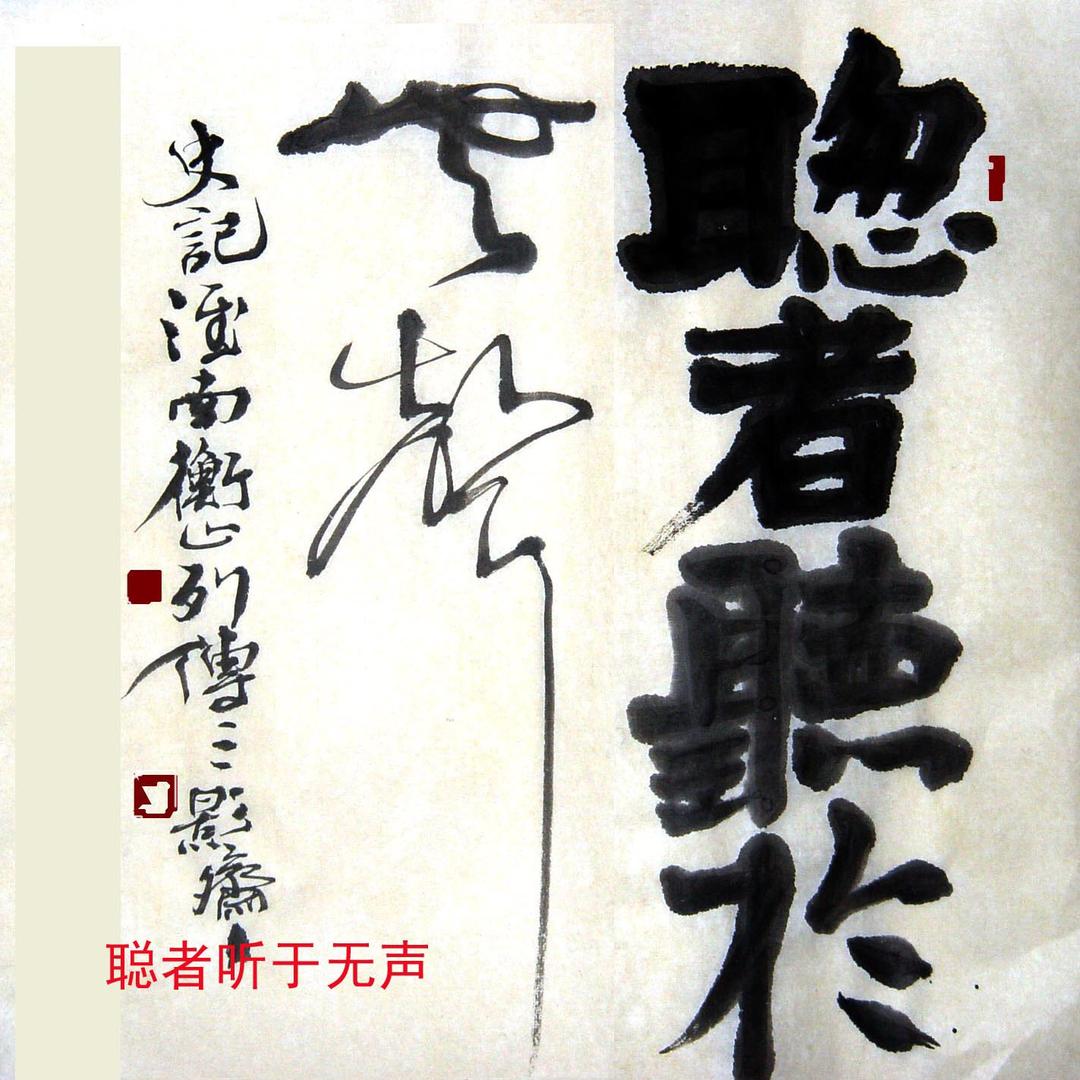 聰者聽於
無聲
史記淮南衡山列傳三三影齋主
聪者听于无声